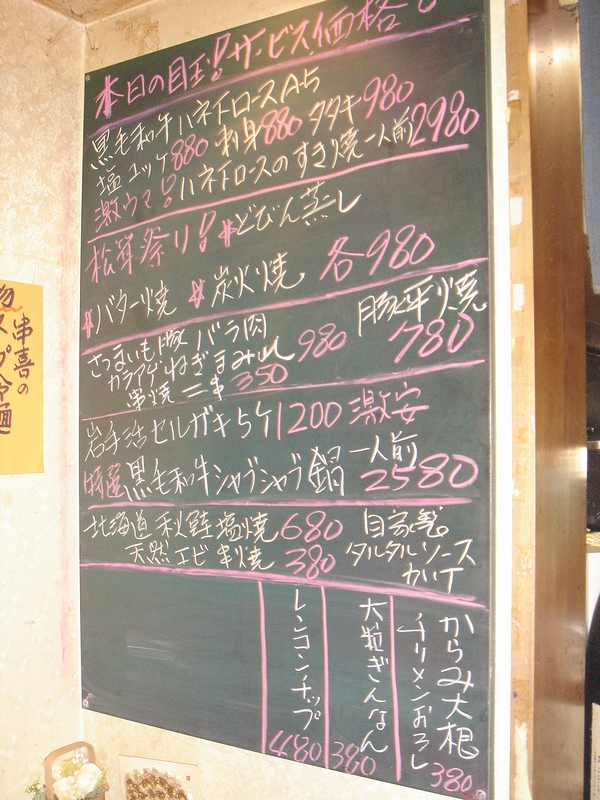 本日の目玉!サービス価格!
黒毛和牛ハネ下ロースA5
塩ユッケ880 刺身880 タタキ980
激ウマ!ハネ下ロースのすき焼一人前2980
松茸祭り! *どびん蒸し
*バター焼 *炭火焼 各980
さつまいも豚バラ肉 980
豚平焼
780
カラアゲねぎまみれ
串焼二串350
岩手活セルガキ5ケ1200激安
特選黒毛和牛シャブシャブ鍋一人前
2580
北海道秋鮭塩焼680
天然エビ串焼380
自家製
タルタルソース
かけ
からみ大根
チリメンおろし
380
大粒ぎんなん
380
レンコンチップ
480
串喜の
冷麺